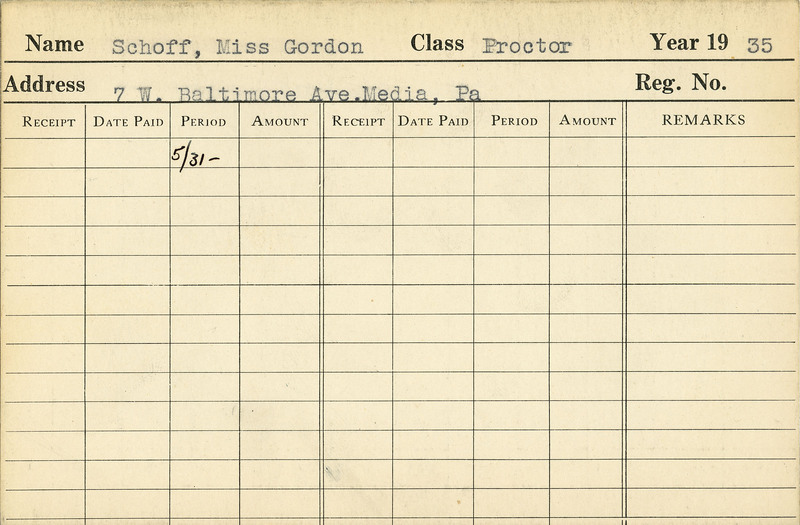 Name Schoff, Miss Gordon Class Proctor Year 19 35
Address 7 W. Baltimore Ave.Media, Pa Reg. No.
RECEIPT DATE PAID PERIOD AMOUNT RECEIPT DATE PAID PERIOD AMOUNT REMARKS
5/31-